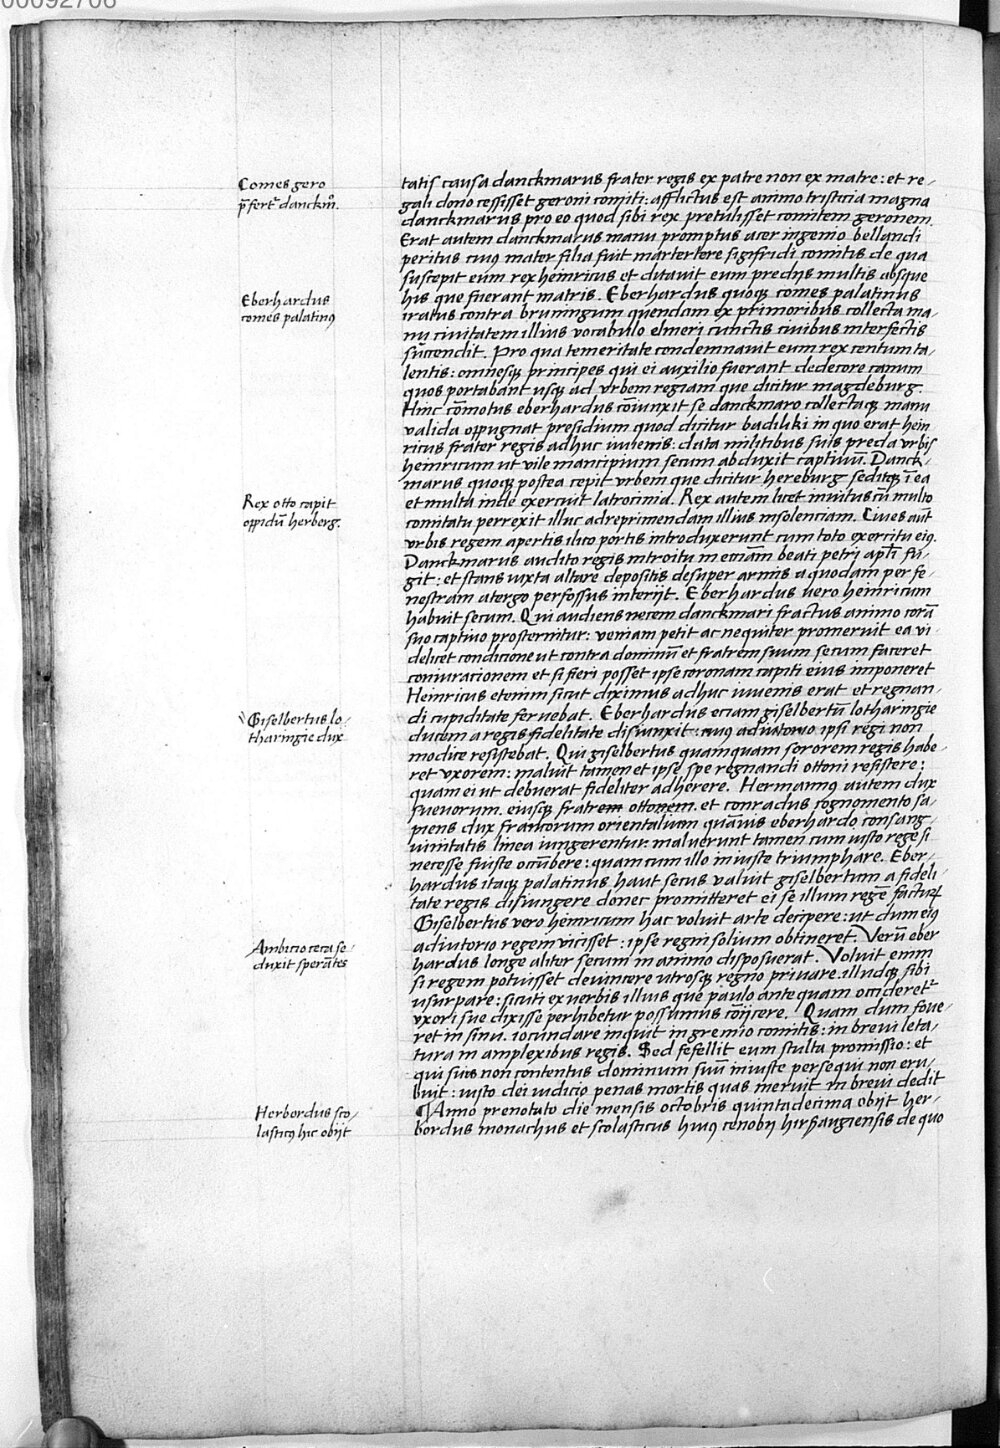 00092706
Comes gero
p̄fert᷑ danckm̊.
tatis causa danckmarus frater regis ex patre non ex matre: et re-
gali dono cessisset geroni comiti: afflictus est animo tristicia magna
danckmarus pro eo quod sibi rex pretulisset comitem geronem.
Erat autem danckmarus manu promptus acer ingenio bellandi
peritus cuiꝰ mater filia fuit martertere sigifridi comitis de qua
suscepit eum rex heinricus et ditauit eum predijs multis absque
Eberhardus
comes palatinꝰ
his que fuerant matris. Eberhardus quoqꝫ comes palatinus
iratus contra bruningum quendam ex primoribus collecta ma-
nu ciuitatem illius vocabulo elmeri cunctis ciuibus interfectis
succendit. Pro qua temeritate condemnauit eum rex centum ta-
lentis: omnesqꝫ principes qui ei auxilio fuerant dedecore canum
quos portabant usqꝫ ad vrbem regiam que dicitur magdeburg.
Hinc cōmotus eberhardus cōiunxit se danckmaro collectaqꝫ manu
valida oppugnat presidium quod dicitur badiliki in quo erat hein
ricus frater regis adhuc iuuenis: data militibus suis preda vrbis
heinricum ut vile mancipium secum abduxit captiuū. Danck-
marus quoqꝫ postea cepit vrbem que dicitur hereburg seditqꝫ ī ea
Rex otto capit
oppidū herberg.
et multa inde exercuit latrocinia. Rex autem licet inuitus cū multo
comitatu perrexit illuc ad reprimendam illius insolenciam. Ciues aūt
vrbis regem apertis ilico portis introduxerunt cum toto exercitu eiꝰ.
Danckmarus audito regis introitu in ecciām beati petri apl̄i fu-
git: et stans iuxta altare depositis desuper armis a quodam per fe-
nestram atergo perfossus interijt. Eberhardus vero heinricum
habuit secum. Qui audiens necem danckmari fractus animo corā
suo captiuo prosternitur: veniam petit ac nequiter promeruit ea vi-
delicet condicione ut contra dominū et fratrem suum secum faceret
coniuracionem et si fieri posset ipse coronam capiti eius imponeret
Heinricus etenim sicut diximus adhuc iuuenis erat et regnan-
Giselbertus lo-
tharingie dux
di cupiditate feruebat. Eberhardus eciam giselbertū lotharingie
ducem a regis fidelitate disiunxit: cuiꝰ adiutorio ipsi regi non
modice resistebat. Qui giselbertus quamquam sororem regis habe-
ret vxorem: maluit tamen et ipse spe regnandi ottoni resistere:
quam ei ut debuerat fideliter adherere. Hermannꝰ autem dux
sueuorum. eiusqꝫ fratrem ottonem. et conradus cognomento sa-
piens dux francorum orientalium quāuis eberhardo consang-
uinitatis linea iungerentur: maluerunt tamen cum iusto rege si
necesse fuiste occūbere: quam cum illo iniuste triumphare. Eber-
hardus itaqꝫ palatinus haut secus valuit giselbertum a fideli-
tate regis disiungere donec promitteret ei se illum regē facturꝝ
Giselbertus vero heinricum hac voluit arte decipere: ut dum eiꝰ
Ambicio ceca se-
duxit sperātes
adiutorio regem vicisset: ipse regni solium obtineret. Verū eber
hardus longe aliter secum in animo disposuerat. Voluit enim
si regem potuisset deuincere utrosqꝫ regno priuare. illudqꝫ sibi
usurpare: sicuti ex verbis illius que paulo ante quam occideret᷑
vxori sue dixisse perhibetur possumus cōijcere. Quam dum foue-
ret in sinu. iocundare inquit in gremio comitis: in breui leta-
tura in amplexibus regis. Sed fefellit eum stulta promissio: et
qui suis non contentus dominum suū iniuste persequi non eru-
buit: iusto dei iudicio penas mortis quas meruit in breui dedit
Herbordus sco-
lasticꝰ hic obijt
¶ Anno prenotato die mensis octobris quintadecima obijt her-
bordus monachus et scolasticus huiꝰ cenobij hirsaugiensis de quo